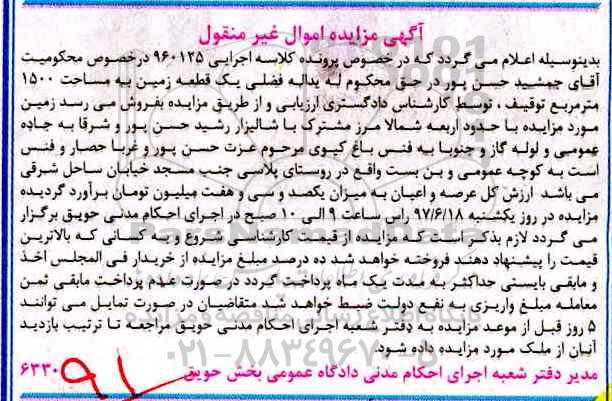 آگهی مزایده اموال غیر منقول
بدینوسیله اعلام می گردد که در خصوص پرونده کلاسه اجرایی ۹۶۰۱۲۵ درخصوص محکومیت
آقای جمشید حسن پور در حق محکوم له یداله فضلی یک قطعه زمین به مساحت ۱۵۰۰
مترمربع توقیف ، توسط کارشناس دادگستری ارزیابی و از طریق مزایده بفروش می رسد زمین
مورد مزایده با حدود اربعه شمالا مرز مشترک با شالیزار رشید حسن پور و شرقا به جاده
عمومی و لوله گاز و جنوبا به فنس باغ کیوی مرحوم عزت حسن پور و غربا حصار و فنس
است به کوچه عمومی و بن بست واقع در روستای پلاسی جنب مسجد خیابان ساحل شرقی
می باشد ارزش کل عرصه و اعیان به میزان یکصد و سی و هفت میلیون تومان برآورد گردیده
مزایده در روز یکشنبه ۹۷/۶/۱۸ راس ساعت ۹ الی ۱۰ صبح در اجرای احکام مدنی حویق برگزار
می گردد لازم بذکر است که مزایده از قیمت کارشناسی شروع و به کسانی که بالاترین
قیمت را پیشنهاد دهند فروخته خواهد شد ده درصد مبلغ مزایده از خریدار فی المجلس اخذ
و مابقی بایستی حداکثر به مدت یک ماه پرداخت گردد در صورت عدم پرداخت مابقی ثمن
معامله مبلغ واریزی به نفع دولت ضبط خواهد شد متقاضیان در صورت تمایل می توانند
۵ روز قبل از موعد مزایده به دفتر شعبه اجرای احکام مدنی حویق مراجعه تا ترتیب بازدید
آنان از ملک مورد مزایده داده شود.
مدیر دفتر شعبه اجرای احکام مدنی دادگاه عمومی بخش حویق ۶۳۳۰
۹۱
ParsNamadData
پایگاه اطلاع رسانی مناقصه و مزایده
۰۲۱-۸۸۳۴۹۶۷۰-۵